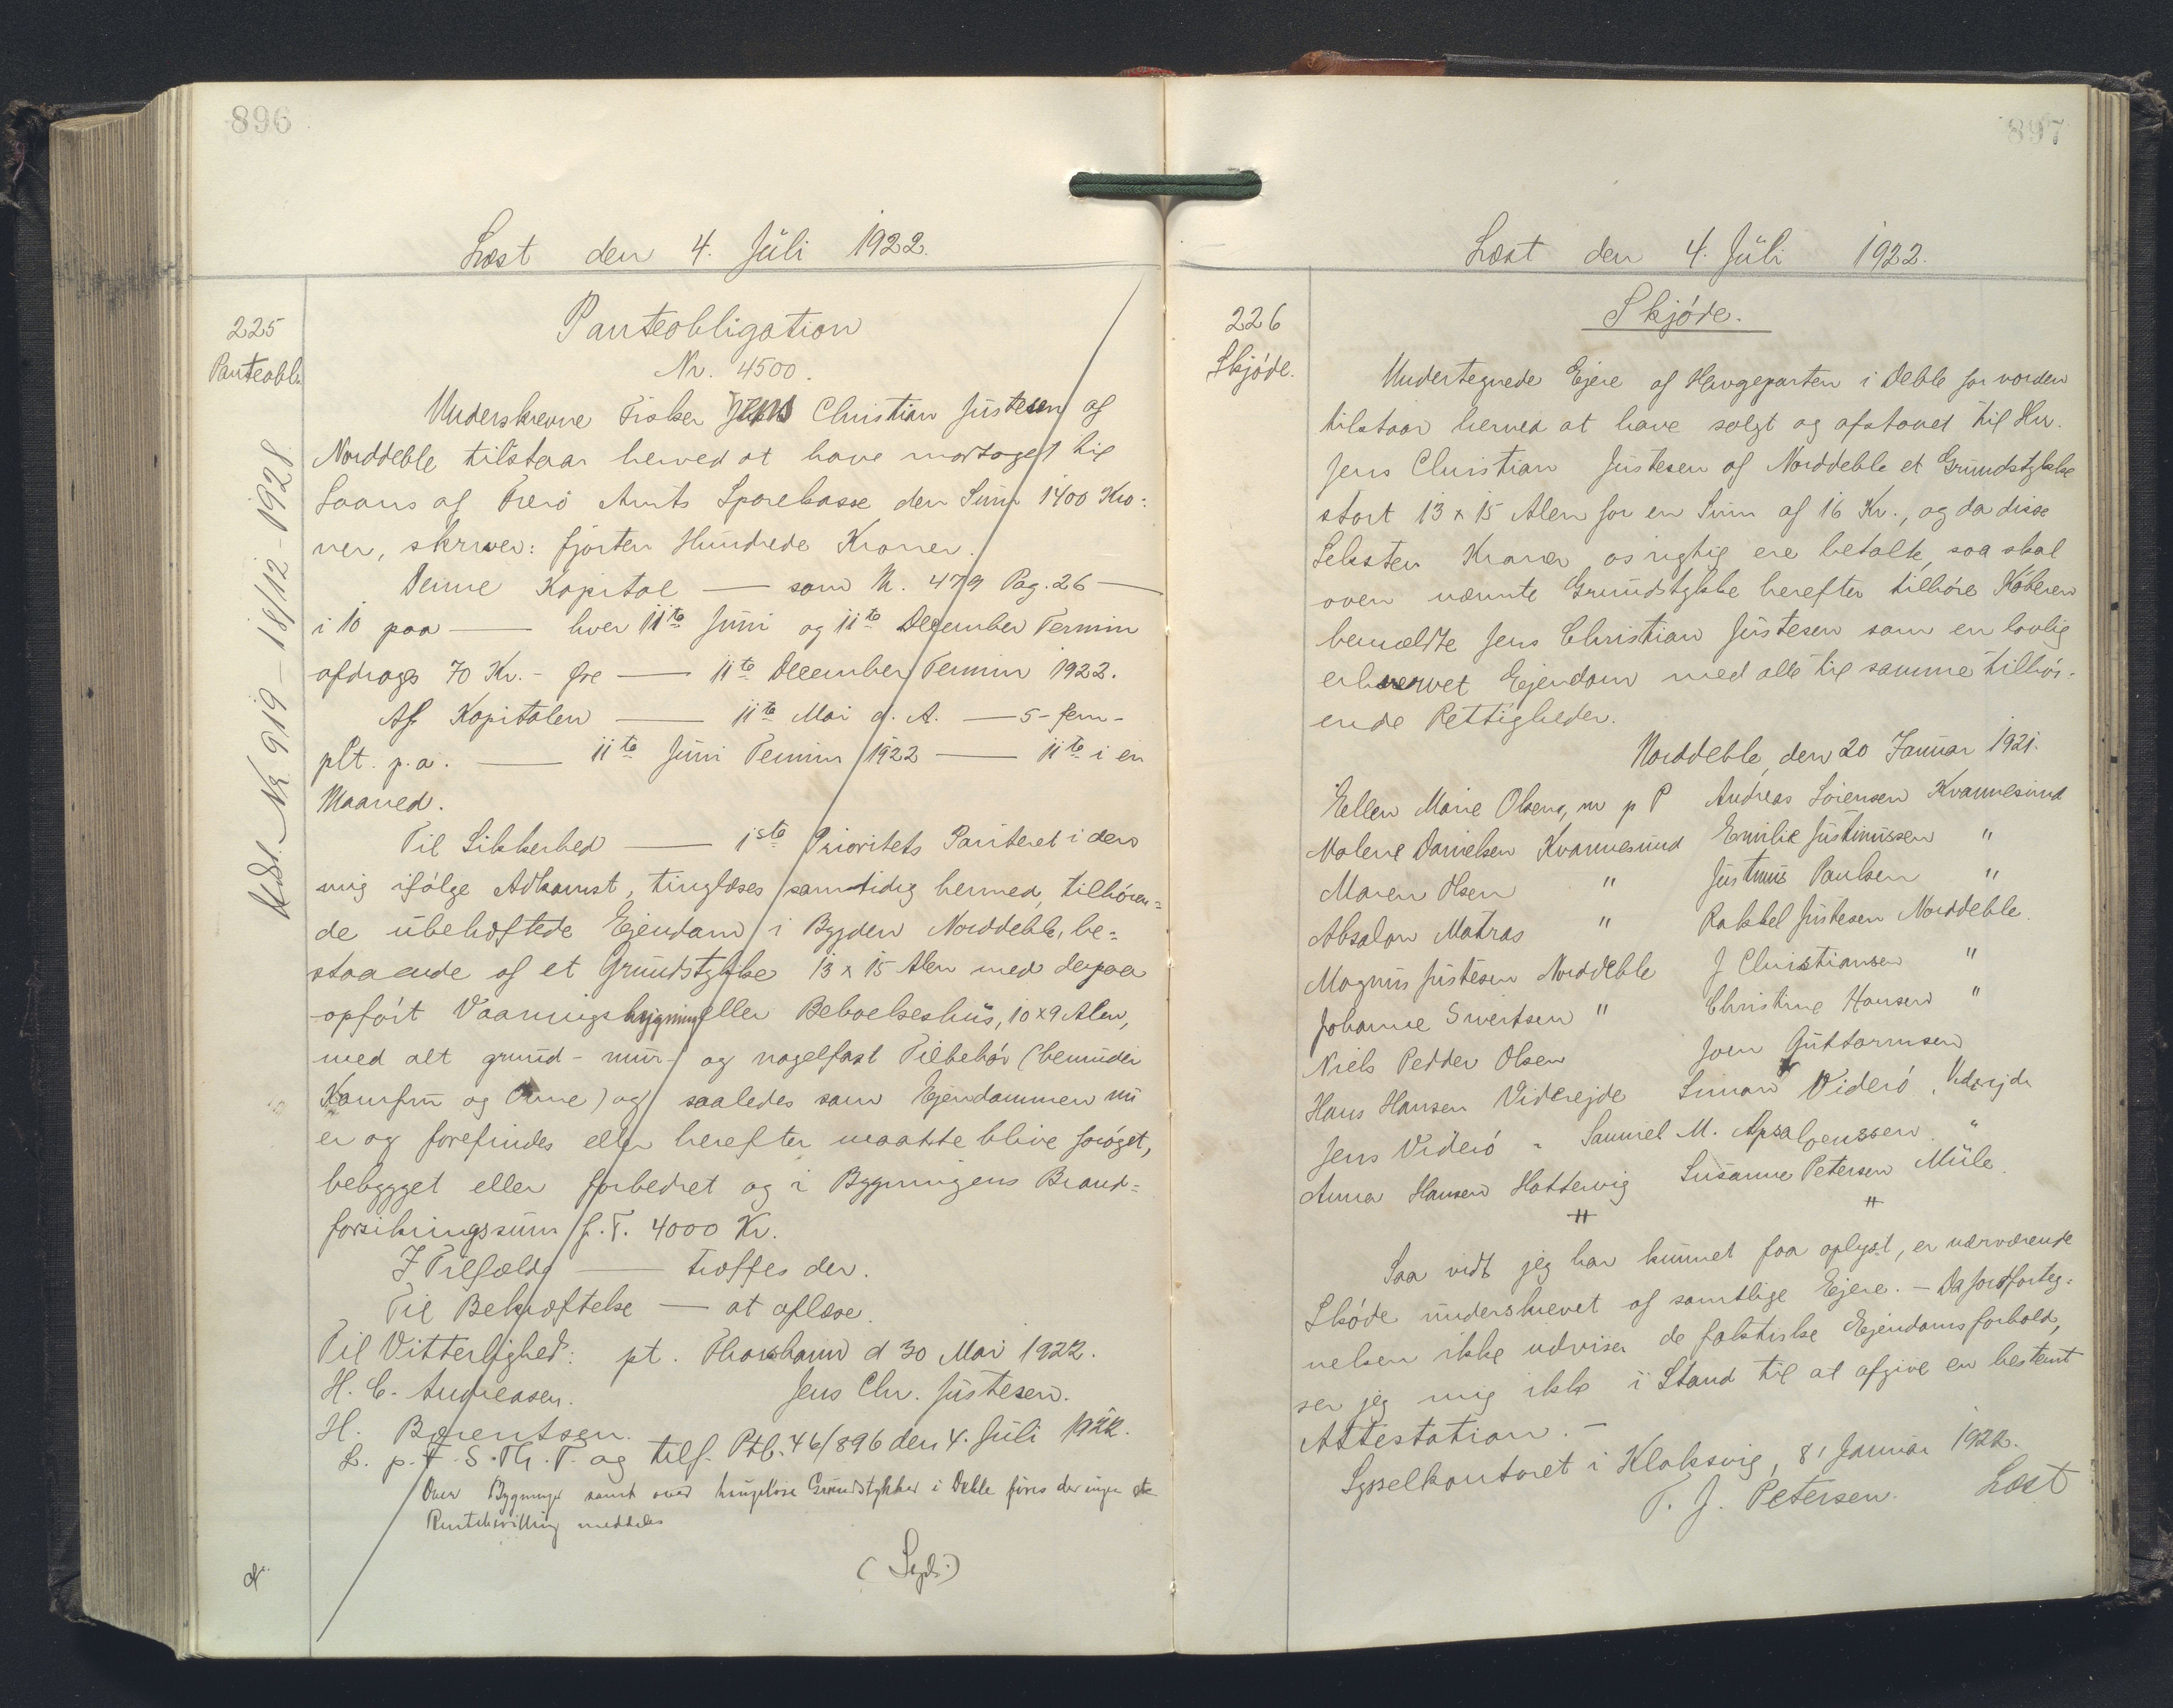 896
Læst den 4. Juli 1922.
225
Panteobl.
Panteobligation
Nr. 4500.
Underskrevne Fisker Jens Christian Justesen af
Norddeble tilstaar herved at have modtaget til
Laans af Færø Amts Sparekasse den Sum 1400 Kro-
ner, skriver: fjorten Hundrede Kroner.
Denne Kapital — som N. 479 Pag. 26 —
i 10 paa — hver 11te Juni og 11te December Termin
afdrages 70 Kr. - før — 11te December Termin 1922.
Af Kapitalen — 11te Mai d. A. — 5 - fem -
pCt. p. a. — 11te Juni Termin 1922 — 11te i en
Maaned.
Til Sikkerhed — 1ste Prioritets Panteret i den
mig ifølge Adkomst, tinglæses samtidig hermed, tilhøren-
de ubehæftede Ejendom i Bygden Norddeble, be-
staaende af et Grundstykke 13 x 15 Alen med derpaa
opført Vaaningsbygning eller Beboelseshus, 10 x 9 Alen,
med alt grund- mur- og nagelfast Tilbehør (herunder
Komfur og Ovne) og saaledes som Ejendommen nu
er og forefindes eller herefter maatte blive forøget,
bebygget eller forbedret og i Bygningens Brand-
forsikringssum p. T. 4000 Kr.
I Tilfælde — træffes der.
Til Bekræftelse — at aflæse.
Til Vitterlighed: pt. Thorshavn d 30 Mai 1922.
H. C. Andreasen. Jens Chr. Justesen.
H. Berentsen.
L. p. F. S. Th. T. og tilf. Ptb. 46/896 den 4. Juli 1922.
Over Bygninger samt over Grundstykker i Deble føres der ingen
meddeles
Udsl. Nr. 919 — 18/12 - 1928
897
Læst den 4. Juli 1922.
226
Skjøde.
Skjøde.
Undertegnede Ejere af Havgeparten i Deble for norden
tilstaar herved at have solgt og afstaaet til Hr.
Jens Christian Justesen af Norddeble et Grundstykke
stort 13 x 15 Alen for en Sum af 16 Kr., og da disse
Seksten Kroner os rigtig ere betalte, saa skal
oven nævnte Grundstykke herefter tilhøre Køberen
bemældte Jens Christian Justesen som en lovlig
erhvervet Ejendom med alle til samme tilhør-
ende Rettigheder.
Norddeble, den 20 Januar 1921.
Eellen Marie Olsens, m p P Andreas Sørensen Kvannesund
Malene Danielsen Kvannesund Emilie Justinussen "
Maren Olsen " Justinus Paulsen "
Absalon Matras " Rakkel Justesen Norddeble.
Magnus Justesen Norddeble J Christiansen "
Johanne Sivertsen " Christine Hansen "
Niels Pedder Olsen Joen Guttormsen
Hans Hansen Viderejde Simon Viderö, Viderejde
Jens Viderö " Samuel M. Apsalonssen "
Anna Hansen Hattervig Susanne Petersen Mule.
" "
Saa vidt jeg har kunnet faa oplyst, er nærværende
Skøde underskrevet af samtlige Ejere. — Da Jordforteg-
nelsen ikke udviser de faktiske Ejendomsforhold,
ser jeg mig ikke i Stand til at afgive en bestemt
Attestation. —
Sysselkontoret i Klaksvig, 8' Januar 1922.
T. J. Petersen. Læst